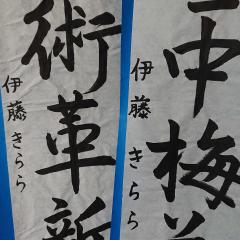 中梅
伊藤きらら
術革新
伊藤きらら